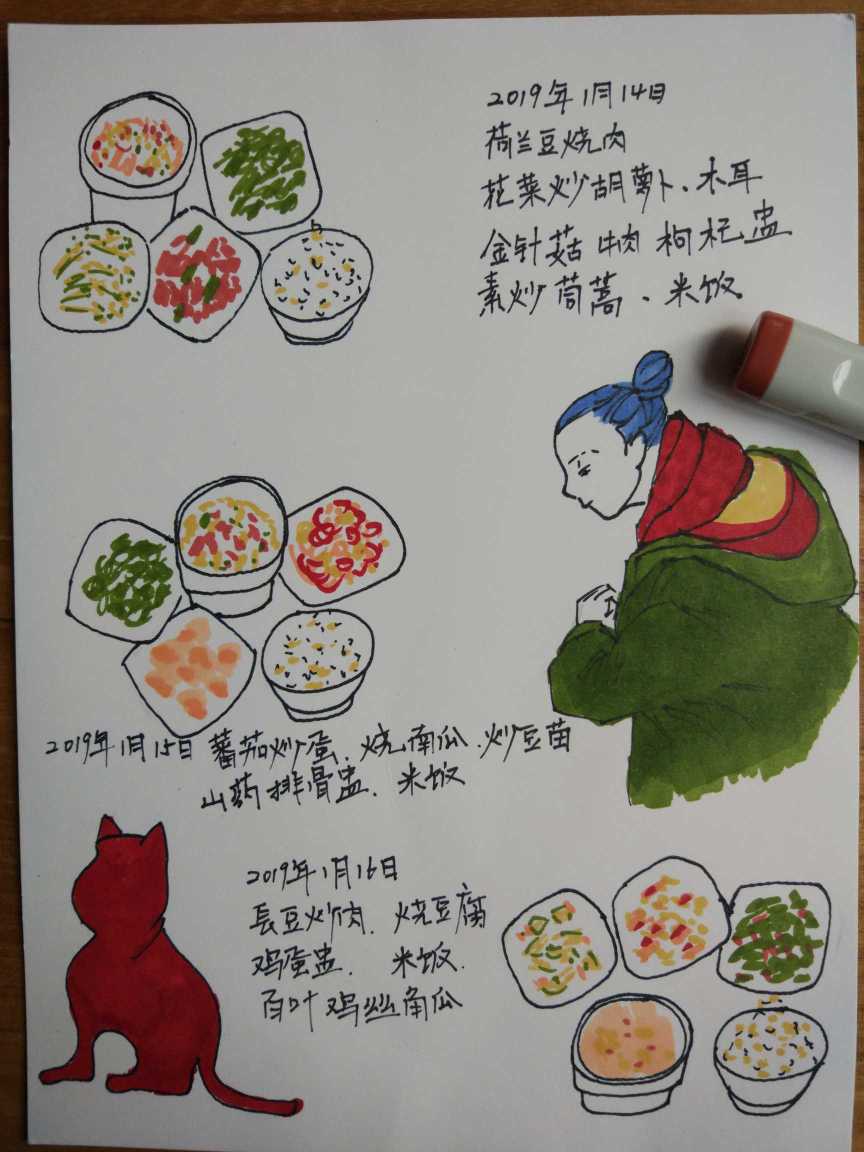 2019年1月14日
荷兰豆烧肉
花菜炒胡萝卜、木耳
金针菇牛肉枸杞盅
素炒茼蒿、米饭
2019年1月15日 蕃茄炒蛋、烧南瓜、炒豆苗
山药排骨盅、米饭
2019年1月16日
長豆炒肉、烧豆腐
鸡蛋盅、米饭、
百叶鸡丝南瓜